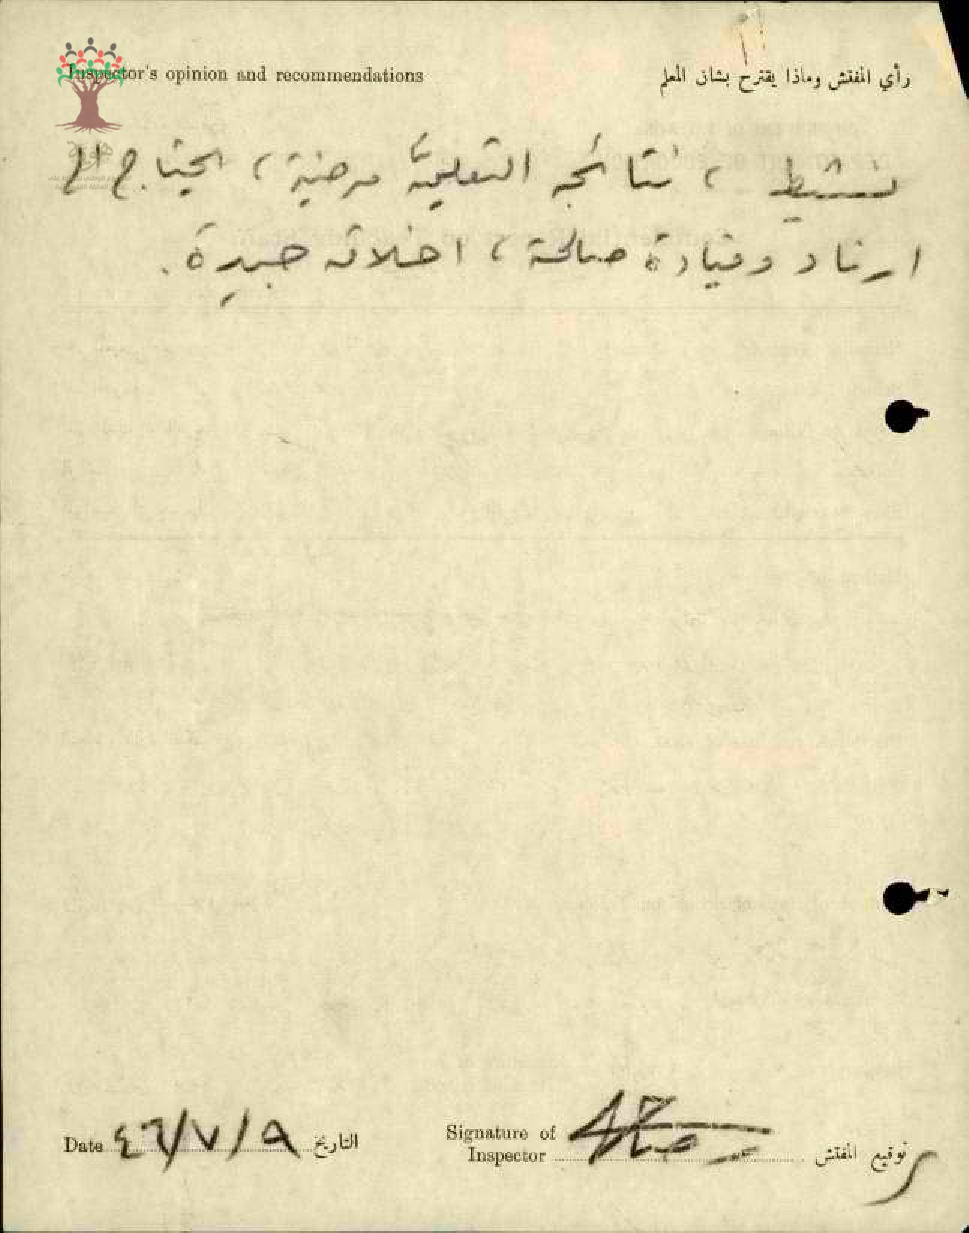 Inspector's opinion and recommendations رأي المفتش وماذا يقترح بشان المعلم
نشيط ، نتائجه التعليمية مرضية ، يحتاج الى
ارشاد وقيادة صالحة ، اخلاقه جيدة .
Date ٤٦/٧/٩ التاريخ
Signature of Inspector توقيع المفتش